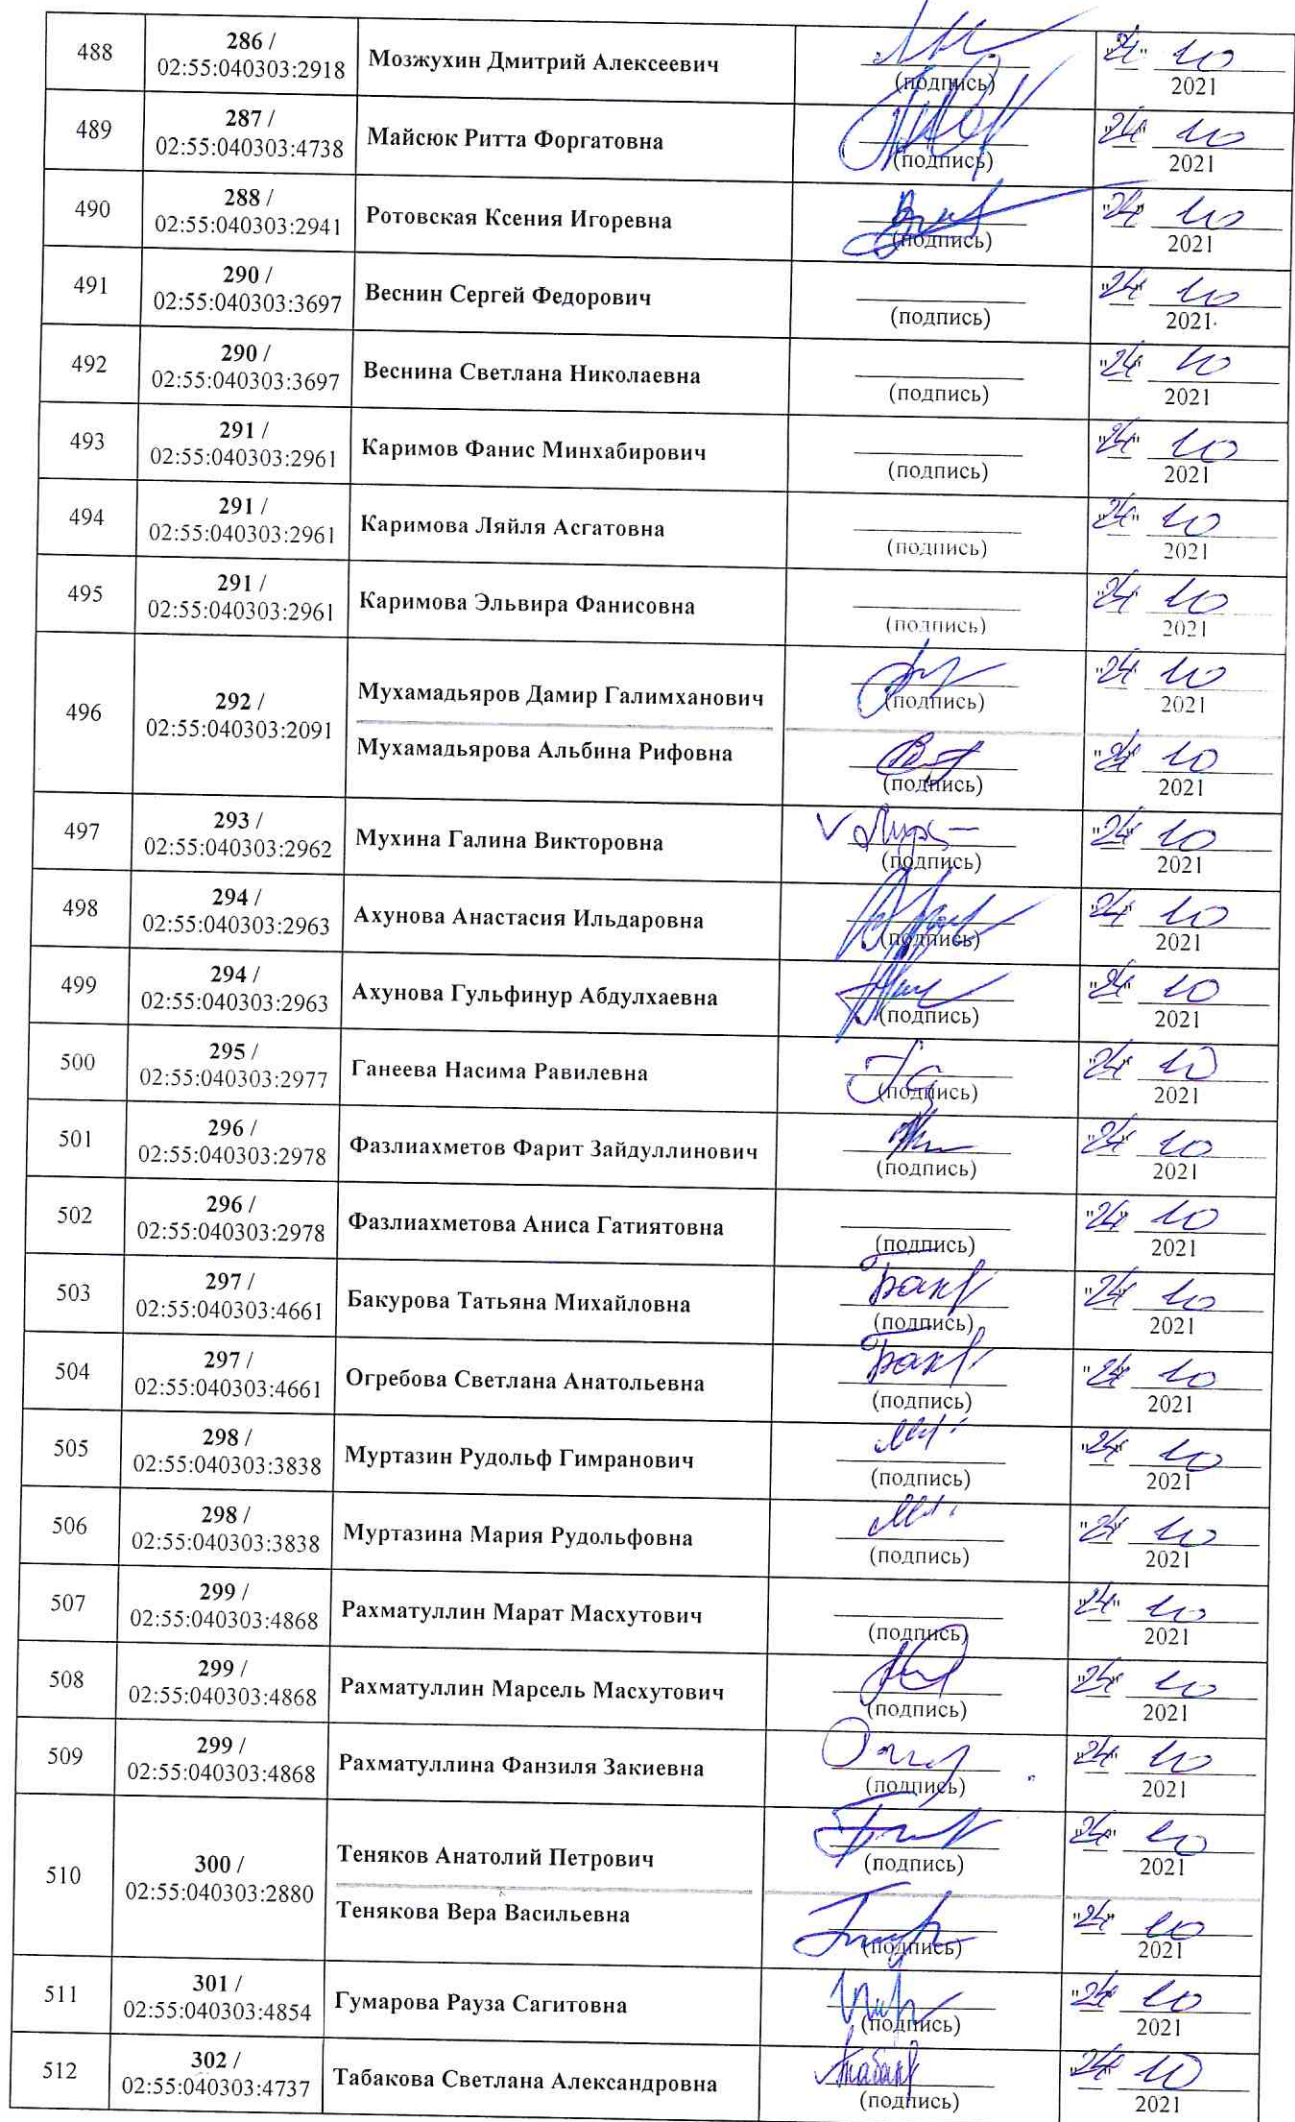 488
286 /
02:55:040303:2918
Мозжухин Дмитрий Алексеевич
(подпись)
"24" 10
2021
489
287 /
02:55:040303:4738
Майсюк Ритта Форгатовна
(подпись)
"24" 10
2021
490
288 /
02:55:040303:2941
Ротовская Ксения Игоревна
(подпись)
"24" 10
2021
491
290 /
02:55:040303:3697
Веснин Сергей Федорович
(подпись)
"24" 10
2021
492
290 /
02:55:040303:3697
Веснина Светлана Николаевна
(подпись)
"24" 10
2021
493
291 /
02:55:040303:2961
Каримов Фанис Минхабирович
(подпись)
"24" 10
2021
494
291 /
02:55:040303:2961
Каримова Ляйля Асгатовна
(подпись)
"24" 10
2021
495
291 /
02:55:040303:2961
Каримова Эльвира Фанисовна
(подпись)
"24" 10
2021
496
292 /
02:55:040303:2091
Мухамадьяров Дамир Галимханович
(подпись)
"24" 10
2021
Мухамадьярова Альбина Рифовна
(подпись)
"24" 10
2021
497
293 /
02:55:040303:2962
Мухина Галина Викторовна
(подпись)
"24" 10
2021
498
294 /
02:55:040303:2963
Ахунова Анастасия Ильдаровна
(подпись)
"24" 10
2021
499
294 /
02:55:040303:2963
Ахунова Гульфинур Абдулхаевна
(подпись)
"24" 10
2021
500
295 /
02:55:040303:2977
Ганеева Насима Равилевна
(подпись)
"24" 10
2021
501
296 /
02:55:040303:2978
Фазлиахметов Фарит Зайдуллинович
(подпись)
"24" 10
2021
502
296 /
02:55:040303:2978
Фазлиахметова Аниса Гатиятовна
(подпись)
"24" 10
2021
503
297 /
02:55:040303:4661
Бакурова Татьяна Михайловна
(подпись)
"24" 10
2021
504
297 /
02:55:040303:4661
Огребова Светлана Анатольевна
(подпись)
"24" 10
2021
505
298 /
02:55:040303:3838
Муртазин Рудольф Гимранович
(подпись)
"24" 10
2021
506
298 /
02:55:040303:3838
Муртазина Мария Рудольфовна
(подпись)
"24" 10
2021
507
299 /
02:55:040303:4868
Рахматуллин Марат Масхутович
(подпись)
"24" 10
2021
508
299 /
02:55:040303:4868
Рахматуллин Марсель Масхутович
(подпись)
"24" 10
2021
509
299 /
02:55:040303:4868
Рахматуллина Фанзиля Закиевна
(подпись)
"24" 10
2021
510
300 /
02:55:040303:2880
Теняков Анатолий Петрович
(подпись)
"24" 10
2021
Тенякова Вера Васильевна
(подпись)
"24" 10
2021
511
301 /
02:55:040303:4854
Гумарова Рауза Сагитовна
(подпись)
"24" 10
2021
512
302 /
02:55:040303:4737
Табакова Светлана Александровна
(подпись)
"24" 10
2021